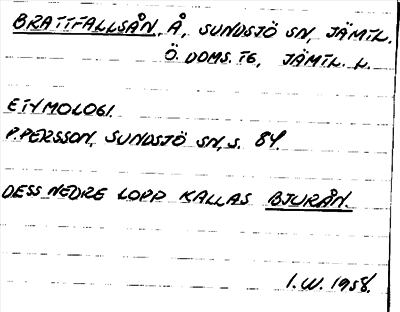 BRATTFALLSÅN, Å, SUNDSJÖ SN, JÄMTL.
Ö. DOMS. TG, JÄMTL. L.
ETYMOLOGI.
P. PERSSON, SUNDSJÖ SN, S. 84.
DESS NEDRE LOPP KALLAS BJURÅN.
I. W. 1958.